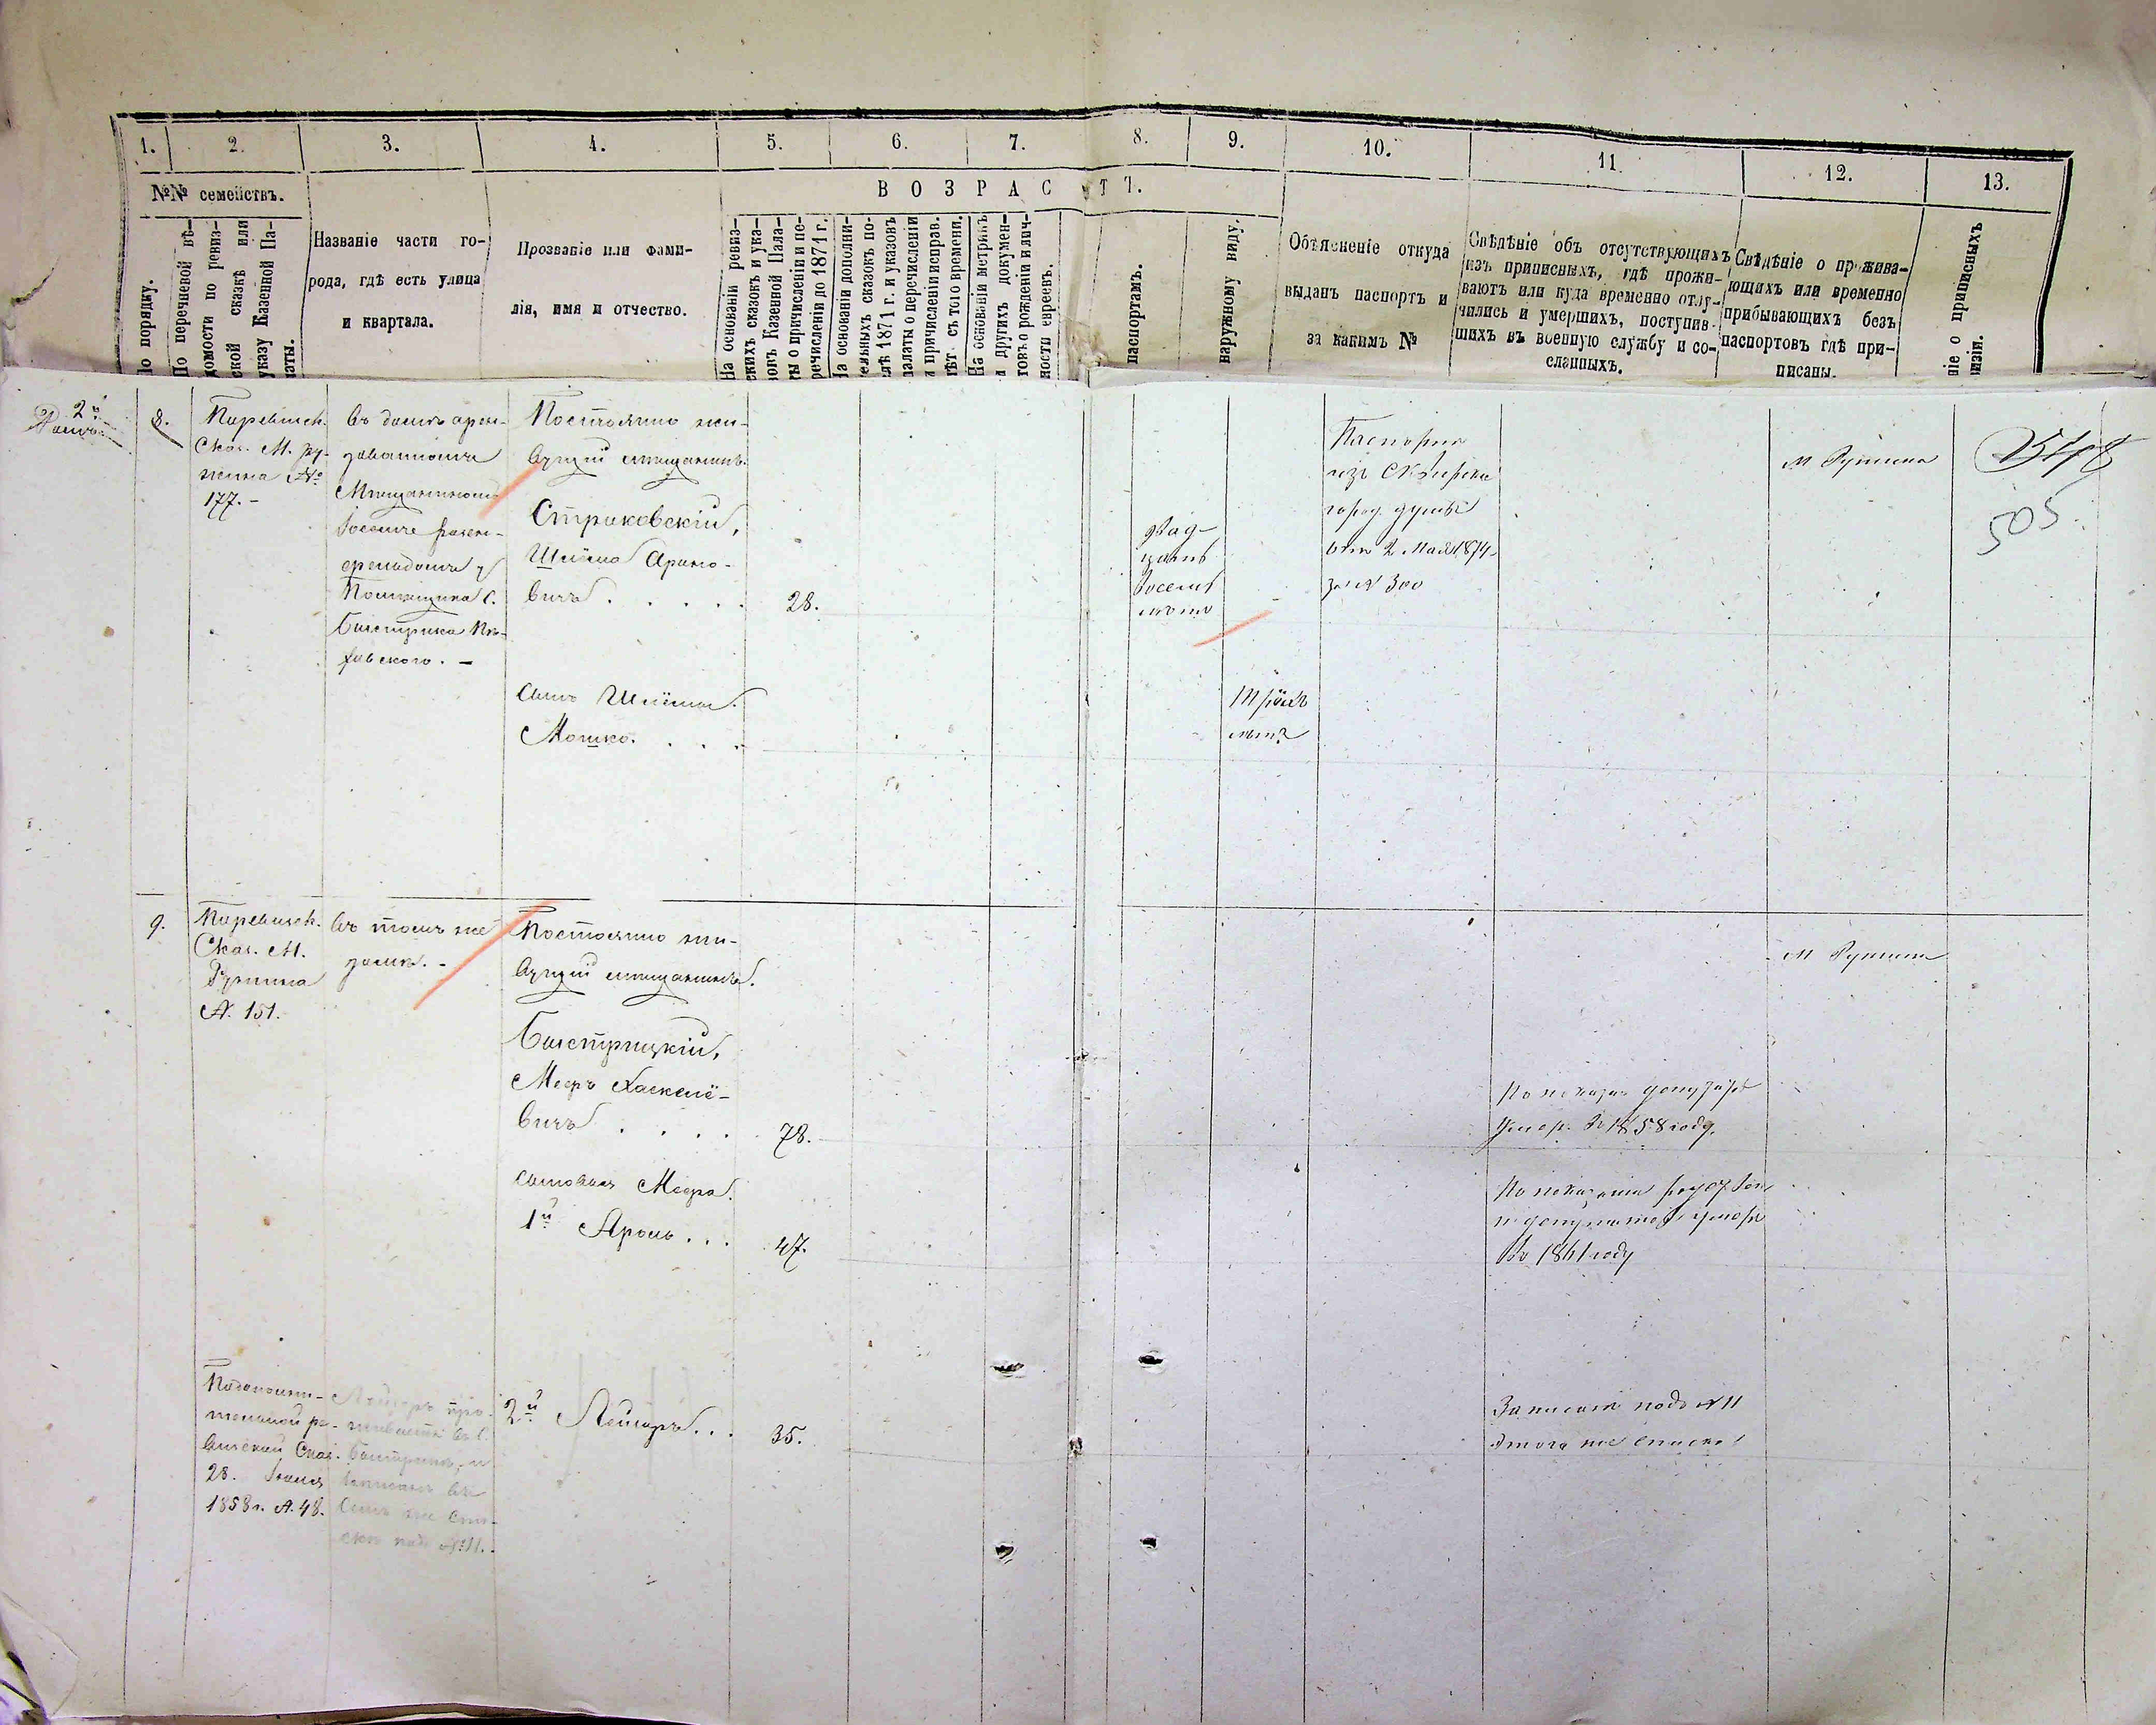 1. 2. 3. 4. 5. 6. 7. 8. 9. 10. 11. 12. 13.
№№ семействъ.
В О З Р А С Т Ъ.
По порядку.
По перечневой вѣ-
домости по ревиз-
ской сказкѣ или
указу Казенной Па-
латы.
Названіе части го-
рода, гдѣ есть улица
и квартала.
Прозваніе или фами-
лія, имя и отчество.
На основаніи ревиз-
скихъ сказокъ и ука-
зовъ Казенной Пала-
ты о причисленіи и пе-
речисленіи до 1871 г.
На основаніи дополни-
тельныхъ сказокъ по-
слѣ 1871 г. и указовъ
палаты о перечисленіи
и причисленіи исправ.
лѣтъ съ того времени.
На основаніи метрикъ
и другихъ докумен-
товъ о рожденіи и лич-
ности евреевъ.
паспортамъ.
наружному виду.
Объясненіе откуда
выданъ паспортъ и
за какимъ №
Свѣдѣніе объ отсутствующихъ
изъ приписныхъ, гдѣ прожи-
ваютъ или куда временно отлу-
чились и умершихъ, поступив-
шихъ въ военную службу и со-
сланныхъ.
Свѣдѣніе о прожива-
ющихъ или временно
прибывающихъ безъ
паспортовъ гдѣ при-
писаны.
ніе о приписныхъ
визіи.
2й
8.
Скаж. М. Ру-
жина №
177. –
въ домѣ арен-
дованномъ
Мѣщаниномъ
Помѣщика С.
Быстрика
Постоянно жи-
вущій мѣщанинъ.
Стриковскій,
Шлёма Ароно-
вичъ . . . . .
28.
двад-
цать
восемь
лѣтъ
Паспортъ
изъ Сквирской
город. думы
отъ 2 Мая 1874
за № 300
М Ружина
505.
сынъ Шлёмы.
Мошко. . . .
лѣтъ
9.
Скаж. М.
Ружина
№. 151.
въ томъ же
домѣ. –
Постоянно жи-
вущій мѣщанинъ.
Быстрицкій,
Мееръ Хаскелё-
вичъ . . . .
78.
По показ. депутата
умер. въ 1858 году.
М Ружина
сыновья Меера.
1й Аронъ . . .
47.
По показанію
и депутатов умеръ
въ 1861 году
По дополни-
тельной ре-
визской Сказ.
28. Іюня
1858 г. №. 48.
Лейзоръ про-
живаетъ въ С.
Быстрикѣ, и
записанъ въ
семъ же спи-
скѣ подъ №: 11.
2й Лейзоръ. . .
35.
Записанъ подъ № 11
этого же списка